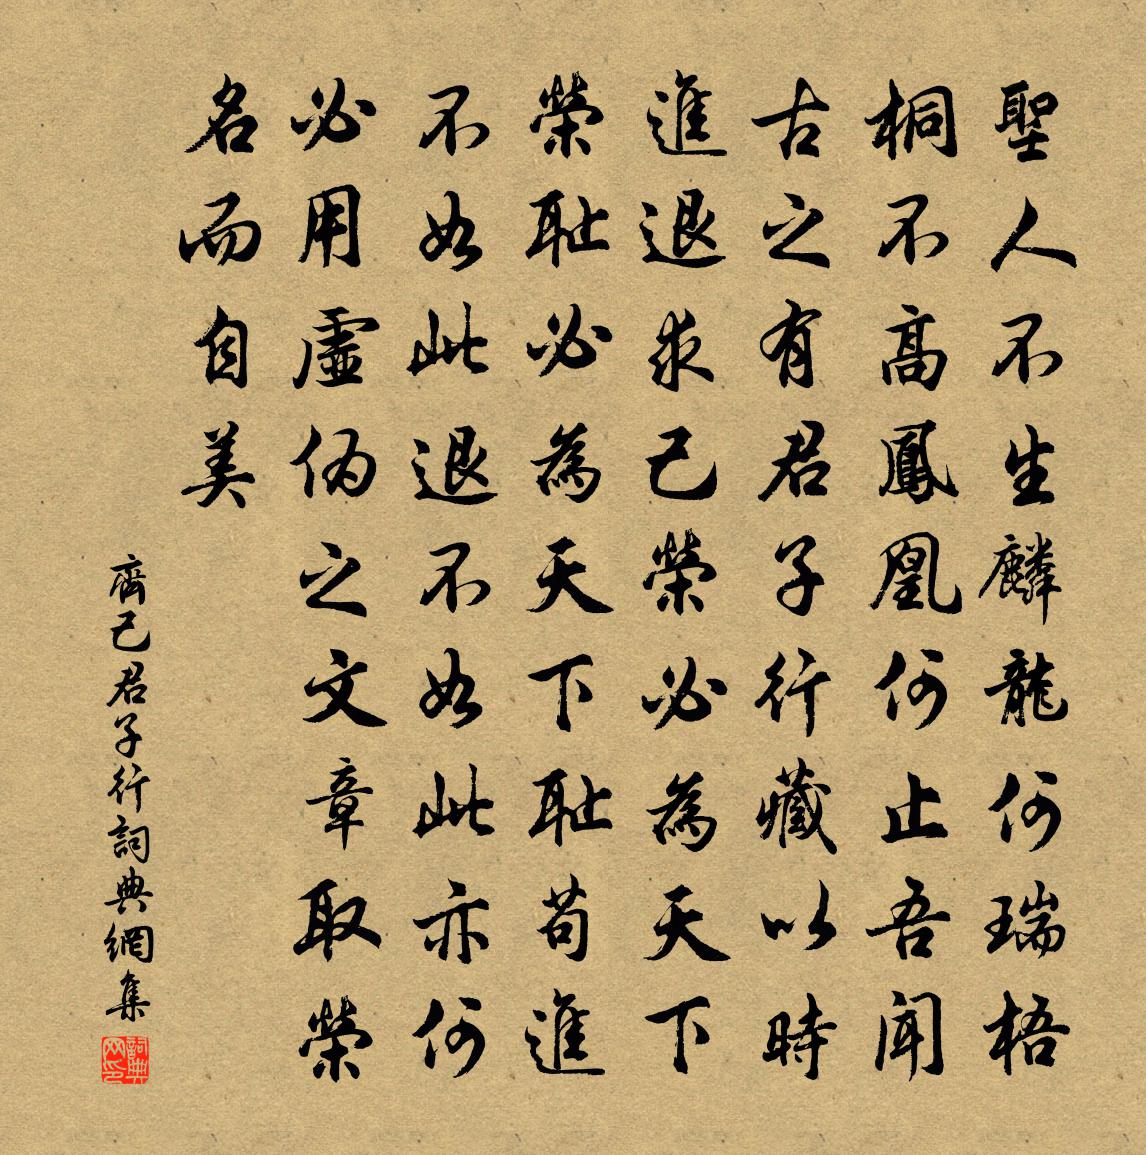 聖人不生麟龍何瑞梧
桐不高鳳凰何止吾聞
古之有君子行藏以時
進退求己榮必為天下
榮耻必為天下耻苟進
不如此退不如此亦何
必用虛偽之文章取榮
名而自美
齊己君子行詞典網集
詞典网印